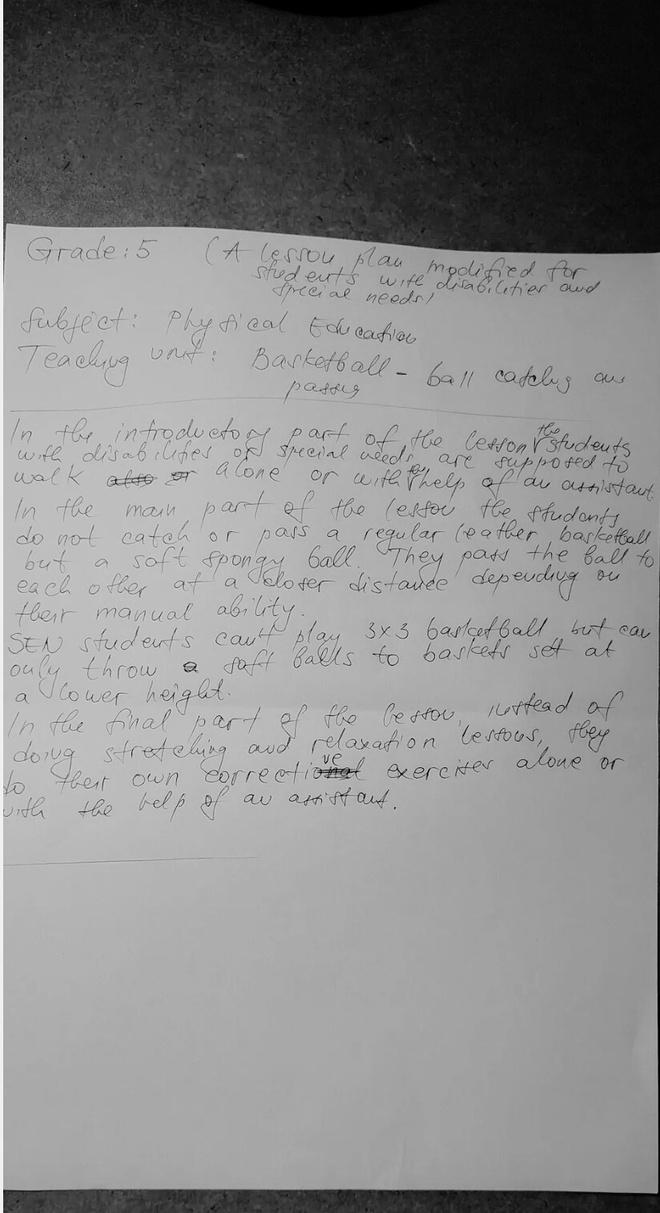 Grade: 5 (A lesson plan modified for
students with disabilities and
special needs)
Subject: Physical Education
Teaching unit: Basketball - ball catching an
passing
In the introductory part of the lesson the students
with disabilities or special needs are supposed to
walk alone or with help of an assistant.
In the main part of the lesson the students
do not catch or pass a regular leather basketball
but a soft spongy ball. They pass the ball to
each other at a closer distance depending on
their manual ability.
SEN students can't play 3x3 basketball but can
only throw soft balls to baskets set at
a lower height.
In the final part of the lesson, instead of
doing stretching and relaxation lessons, they
do their own corrective exercises alone or
with the help of an assistant.